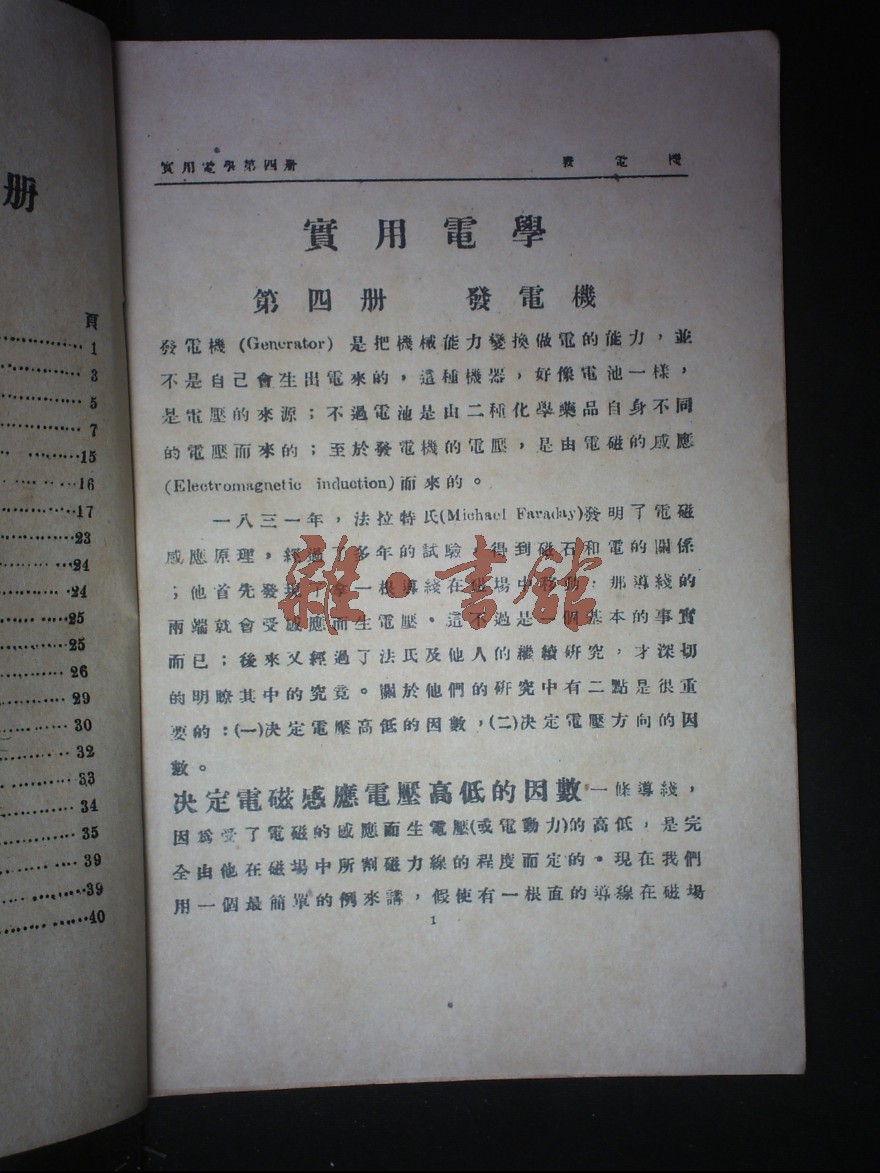 册
頁
1
3
5
7
15
16
17
23
24
24
25
25
26
29
30
32
33
34
35
39
39
40
實用電學第四册 發電機
實用電學
第四册 發電機
發電機 (Generator) 是把機械能力變換做電的能力，並
不是自己會生出電來的，這種機器，好像電池一樣，
是電壓的來源；不過電池是由二種化學藥品自身不同
的電壓而來的；至於發電機的電壓，是由電磁的感應
(Electromagnetic induction)而來的。
一八三一年，法拉特氏(Michael Faraday)發明了電磁
感應原理，經過了多年的試驗，得到磁石和電的關係
；他首先發現了拿一根導綫在磁場中移動，那導綫的
兩端就會受感應而生電壓。這不過是一個基本的事實
而已；後來又經過了法氏及他人的繼續研究，才深切
的明瞭其中的究竟。關於他們的研究中有二點是很重
要的：(一)决定電壓高低的因數，(二)决定電壓方向的因
數。
决定電磁感應電壓高低的因數 一條導綫，
因爲受了電磁的感應而生電壓(或電動力)的高低，是完
全由他在磁場中所割磁力線的程度而定的。現在我們
用一個最簡單的例來講，假使有一根直的導線在磁場
1
雜·書館